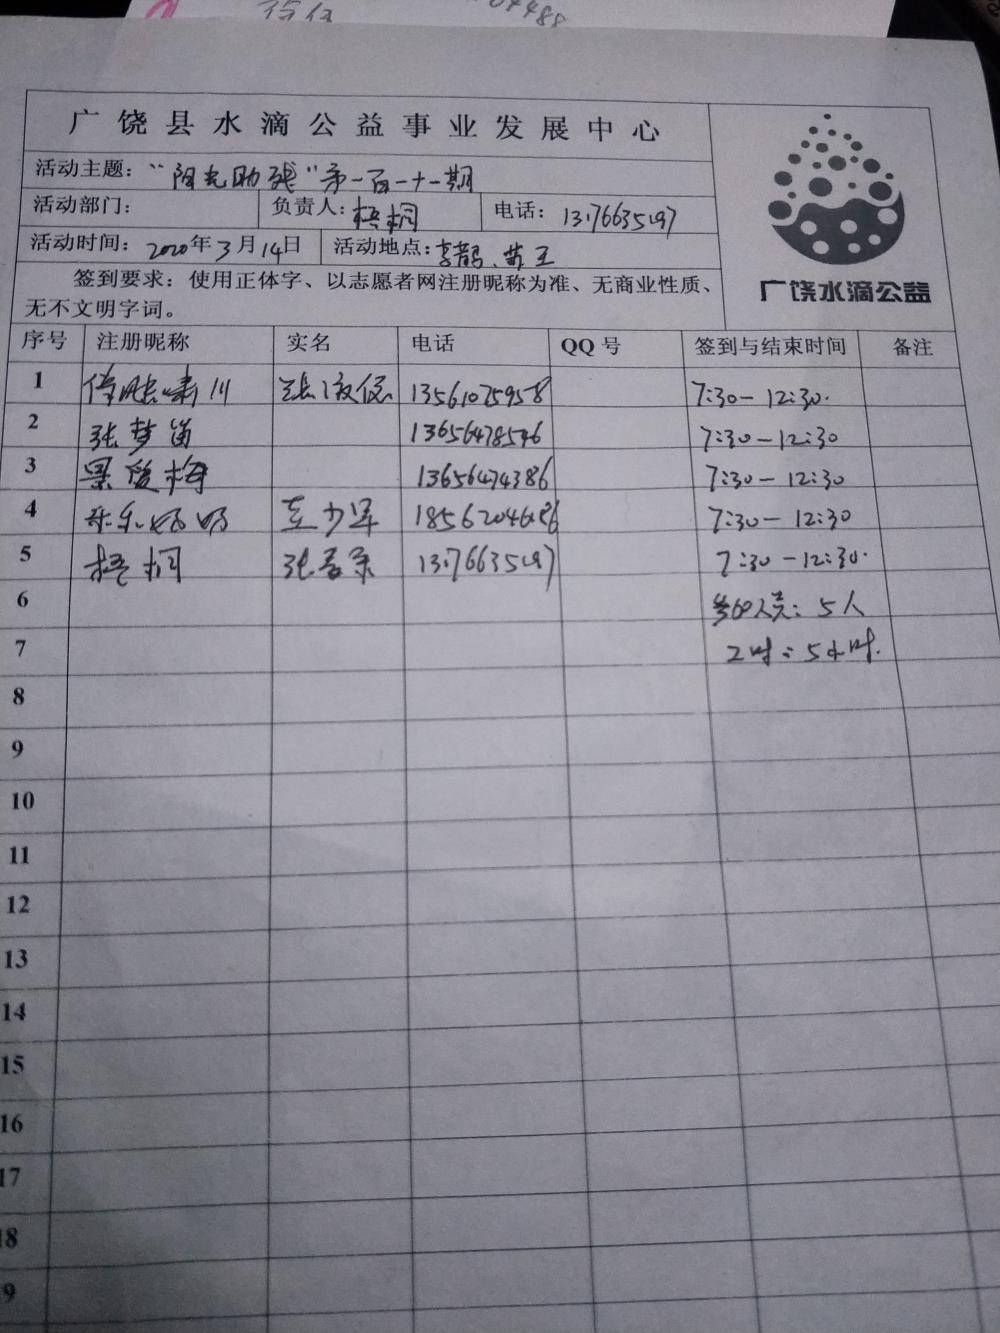 广饶县水滴公益事业发展中心
活动主题：“阳光助残”第一百一十一期
活动部门： 负责人：梧桐 电话：13176635197
活动时间：2020年3月14日 活动地点：李鹊、苗王
签到要求：使用正体字、以志愿者网注册昵称为准、无商业性质、
无不文明字词。
广饶水滴公益
序号 注册昵称 实名 电话 QQ号 签到与结束时间 备注
1 13561075958 7:30-12:30.
2 张梦笛 13656478546 7:30-12:30
3 景爱梅 13656474386 7:30-12:30
4 乐乐妈妈 18562046186 7:30-12:30
5 梧桐 13176635197 7:30-12:30.
6 参加人员：5人
7 工时：5小时.
8
9
10
11
12
13
14
15
16
17
18
9